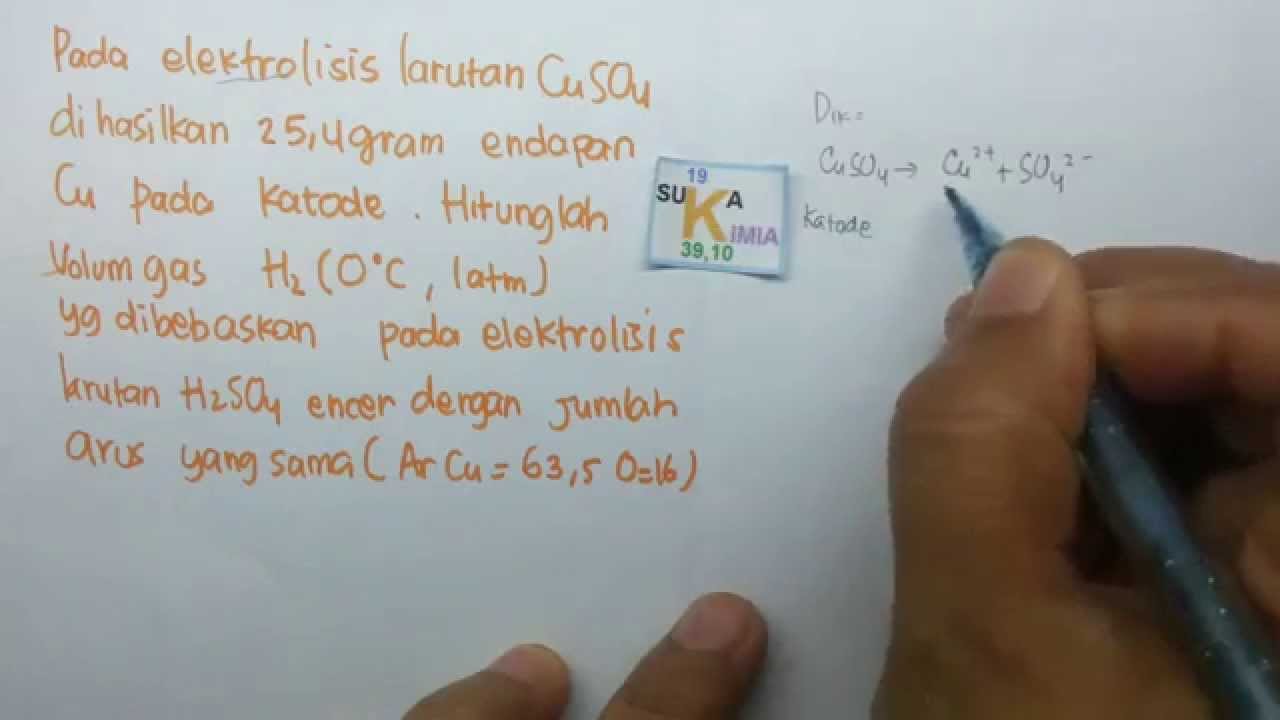 Pada elektrolisis larutan CuSO₄
dihasilkan 25,4gram endapan
Cu pada katode. Hitunglah
Volum gas H₂ (0°C, 1atm)
yg dibebaskan pada elektrolisis
larutan H₂SO₄ encer dengan jumlah
arus yang sama (Ar Cu = 63,5 O=16)
19
SUKA
KIMIA
39,10
Dik =
CuSO₄ → Cu²⁺ + SO₄²⁻
Katode